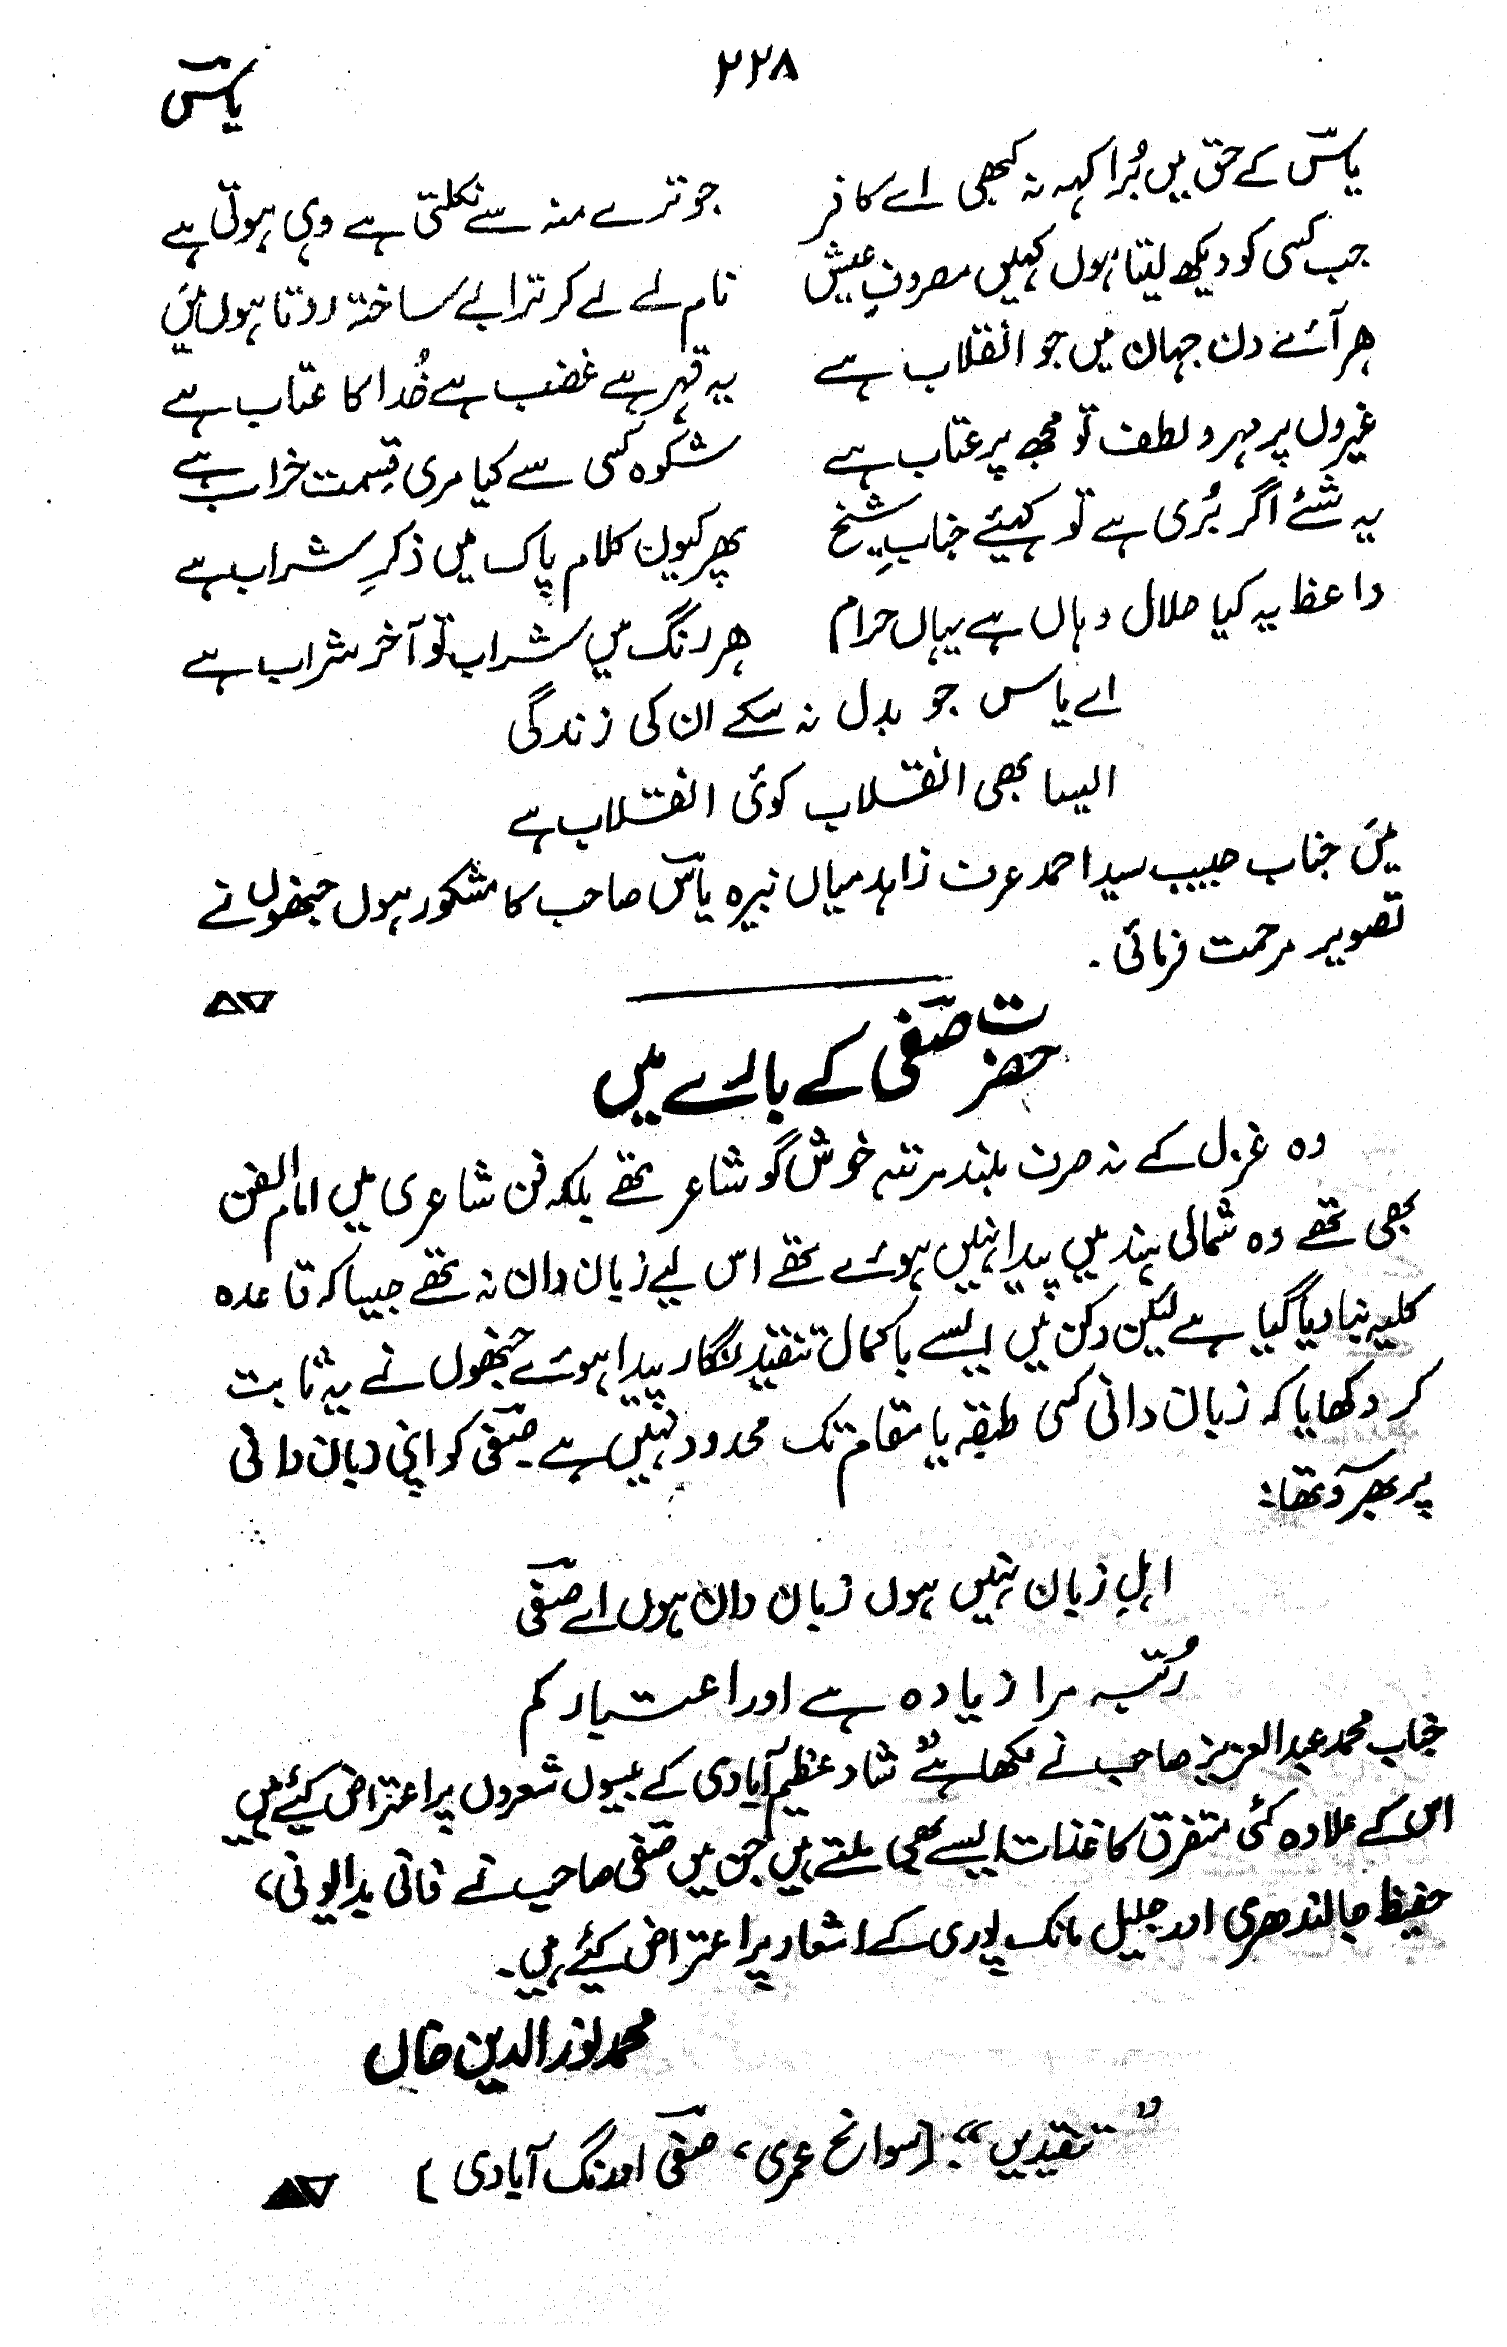 ۲۲۸
یاسؔ
یاسؔ کے حق میں بُرا کہہ نہ کبھی اے کافر جو ترے منہ سے نکلتی ہے وہی ہوتی ہے
جب کسی کو دیکھ لیتا ہوں کہیں مصروفِ عیش نام لے لے کر ترا بے ساختہ روتا ہوں میَں
ھر آئے دن جہان میں جو انقلاب ہے یہ قہر ہے غضب ہے خُدا کا عتاب ہے
غیروں پر مہر و لطف تو مجھ پر عتاب ہے شکوہ کسی سے کیا مری قِسمت خراب ہے
یہ شئے اگر بُری ہے تو کہیئے جنابِ شیخ پھر کیوں کلام پاک میں ذکرِ شراب ہے
واعظ یہ کیا حلال وہاں ہے یہاں حرام ھر رنگ میں شراب تو آخر شراب ہے
اے یاس جو بدل نہ سکے ان کی زندگی
ایسا بھی انقلاب کوئی انقلاب ہے
میَں جناب حبیب سید احمد عرف زاہد میاں نبیرہ یاسؔ صاحب کا مشکور ہوں جنھوں نے
تصویر مرحمت فرمائی ۔
حضرت صفؔی کے بارے میں
وہ غزل کے نہ صرف بلند مرتبہ خوش گو شاعر تھے بلکہ فن شاعری میں امام الفن
بھی تھے وہ شمالی ہند میں پیدا نہیں ہوئے تھے اس لیے زبان دان نہ تھے جیسا کہ قاعدہ
کلیہ بنا دیا گیا ہے لیکن دکن میں ایسے باکمال تنقید نگار پیدا ہوئے جنھوں نے یہ ثابت
کر دکھایا کہ زبان دانی کسی طبقہ یا مقام تک محدود نہیں ہے۔ صفؔی کو اپنی زبان دانی
پر بھروسہ تھا:
اہلِ زبان نہیں ہوں زبان دان ہوں اے صفؔی
رُتبہ مرا زیادہ ہے اور اعتبار کم
جناب محمد عبدالعزیز صاحب نے لکھا ہے "شاد عظیم آبادی کے بیسوں شعروں پر اعتراض کیئے ہیں
اس کے علاوہ کئی متفرق کاغذات ایسے بھی ملتے ہیں جن میں صفؔی صاحب نے فانی بدایونی،
حفیظ جالندھری اور جلیل مانک پوری کے اشعار پر اعتراض کیئے ہیں۔
محمد نور الدین خاں
"تنقیدیں": [سوانح عمری، صفؔی اورنگ آبادی]